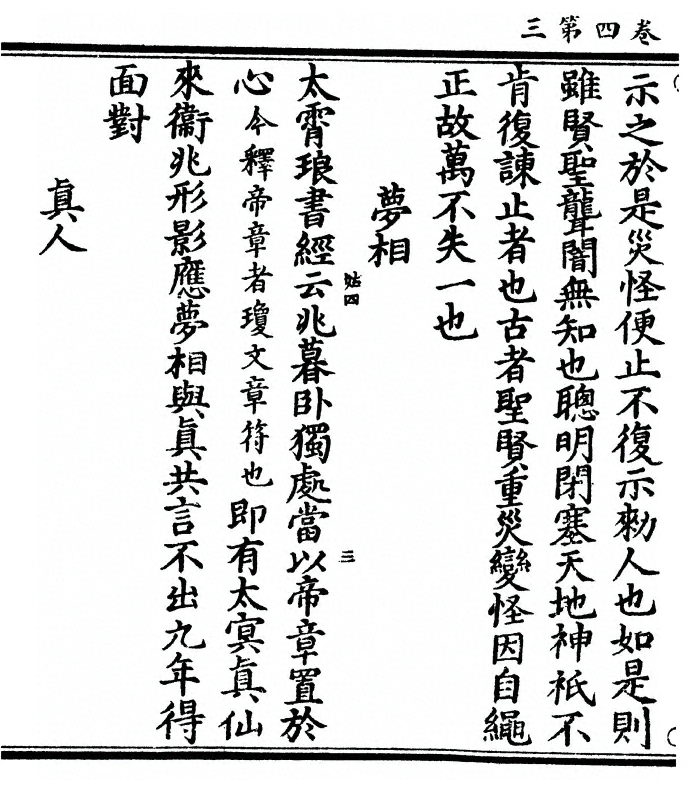 三第四卷
示之於是災怪便止不復示勑人也如是則
雖賢聖聾闇無知也聰明閉塞天地神祇不
肯復諫止者也古者聖賢重災變怪因自繩
正故萬不失一也
夢相
姑四
三
太霄琅書經云兆暮卧獨處當以帝章置於
心今釋帝章者瓊文章符也即有太㝠真仙
來衞兆形影應夢相與真共言不出九年得
面對
真人